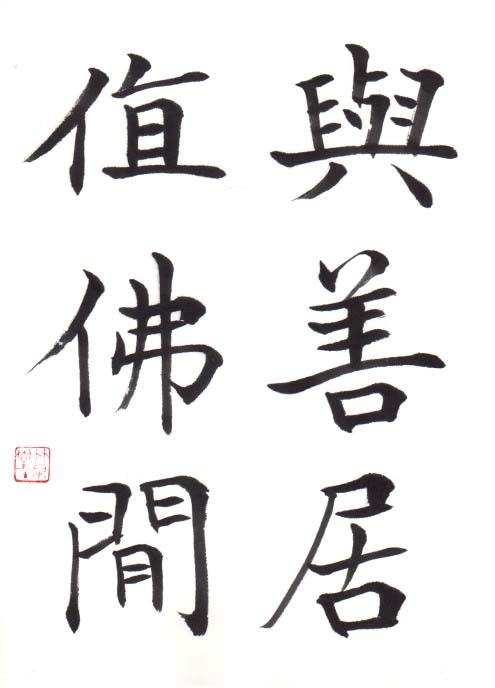 與善居
值佛閒